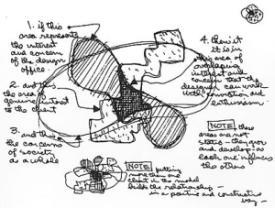 1. if this
area represents
the interest
and concern
of the design
office.
2. and this
the area of
genuine interest
to the client
3. and this
the concerns
of society
as a whole
4. then it
is in this
area of
overlapping
interest and
concern that the
designer can work
with conviction and
enthusiasm
NOTE: these
areas are not
static - they grow
and develop as
each one influences
the others
NOTE: putting
more than one
client in the model
builds the relationship -
in a positive and constructive
way -